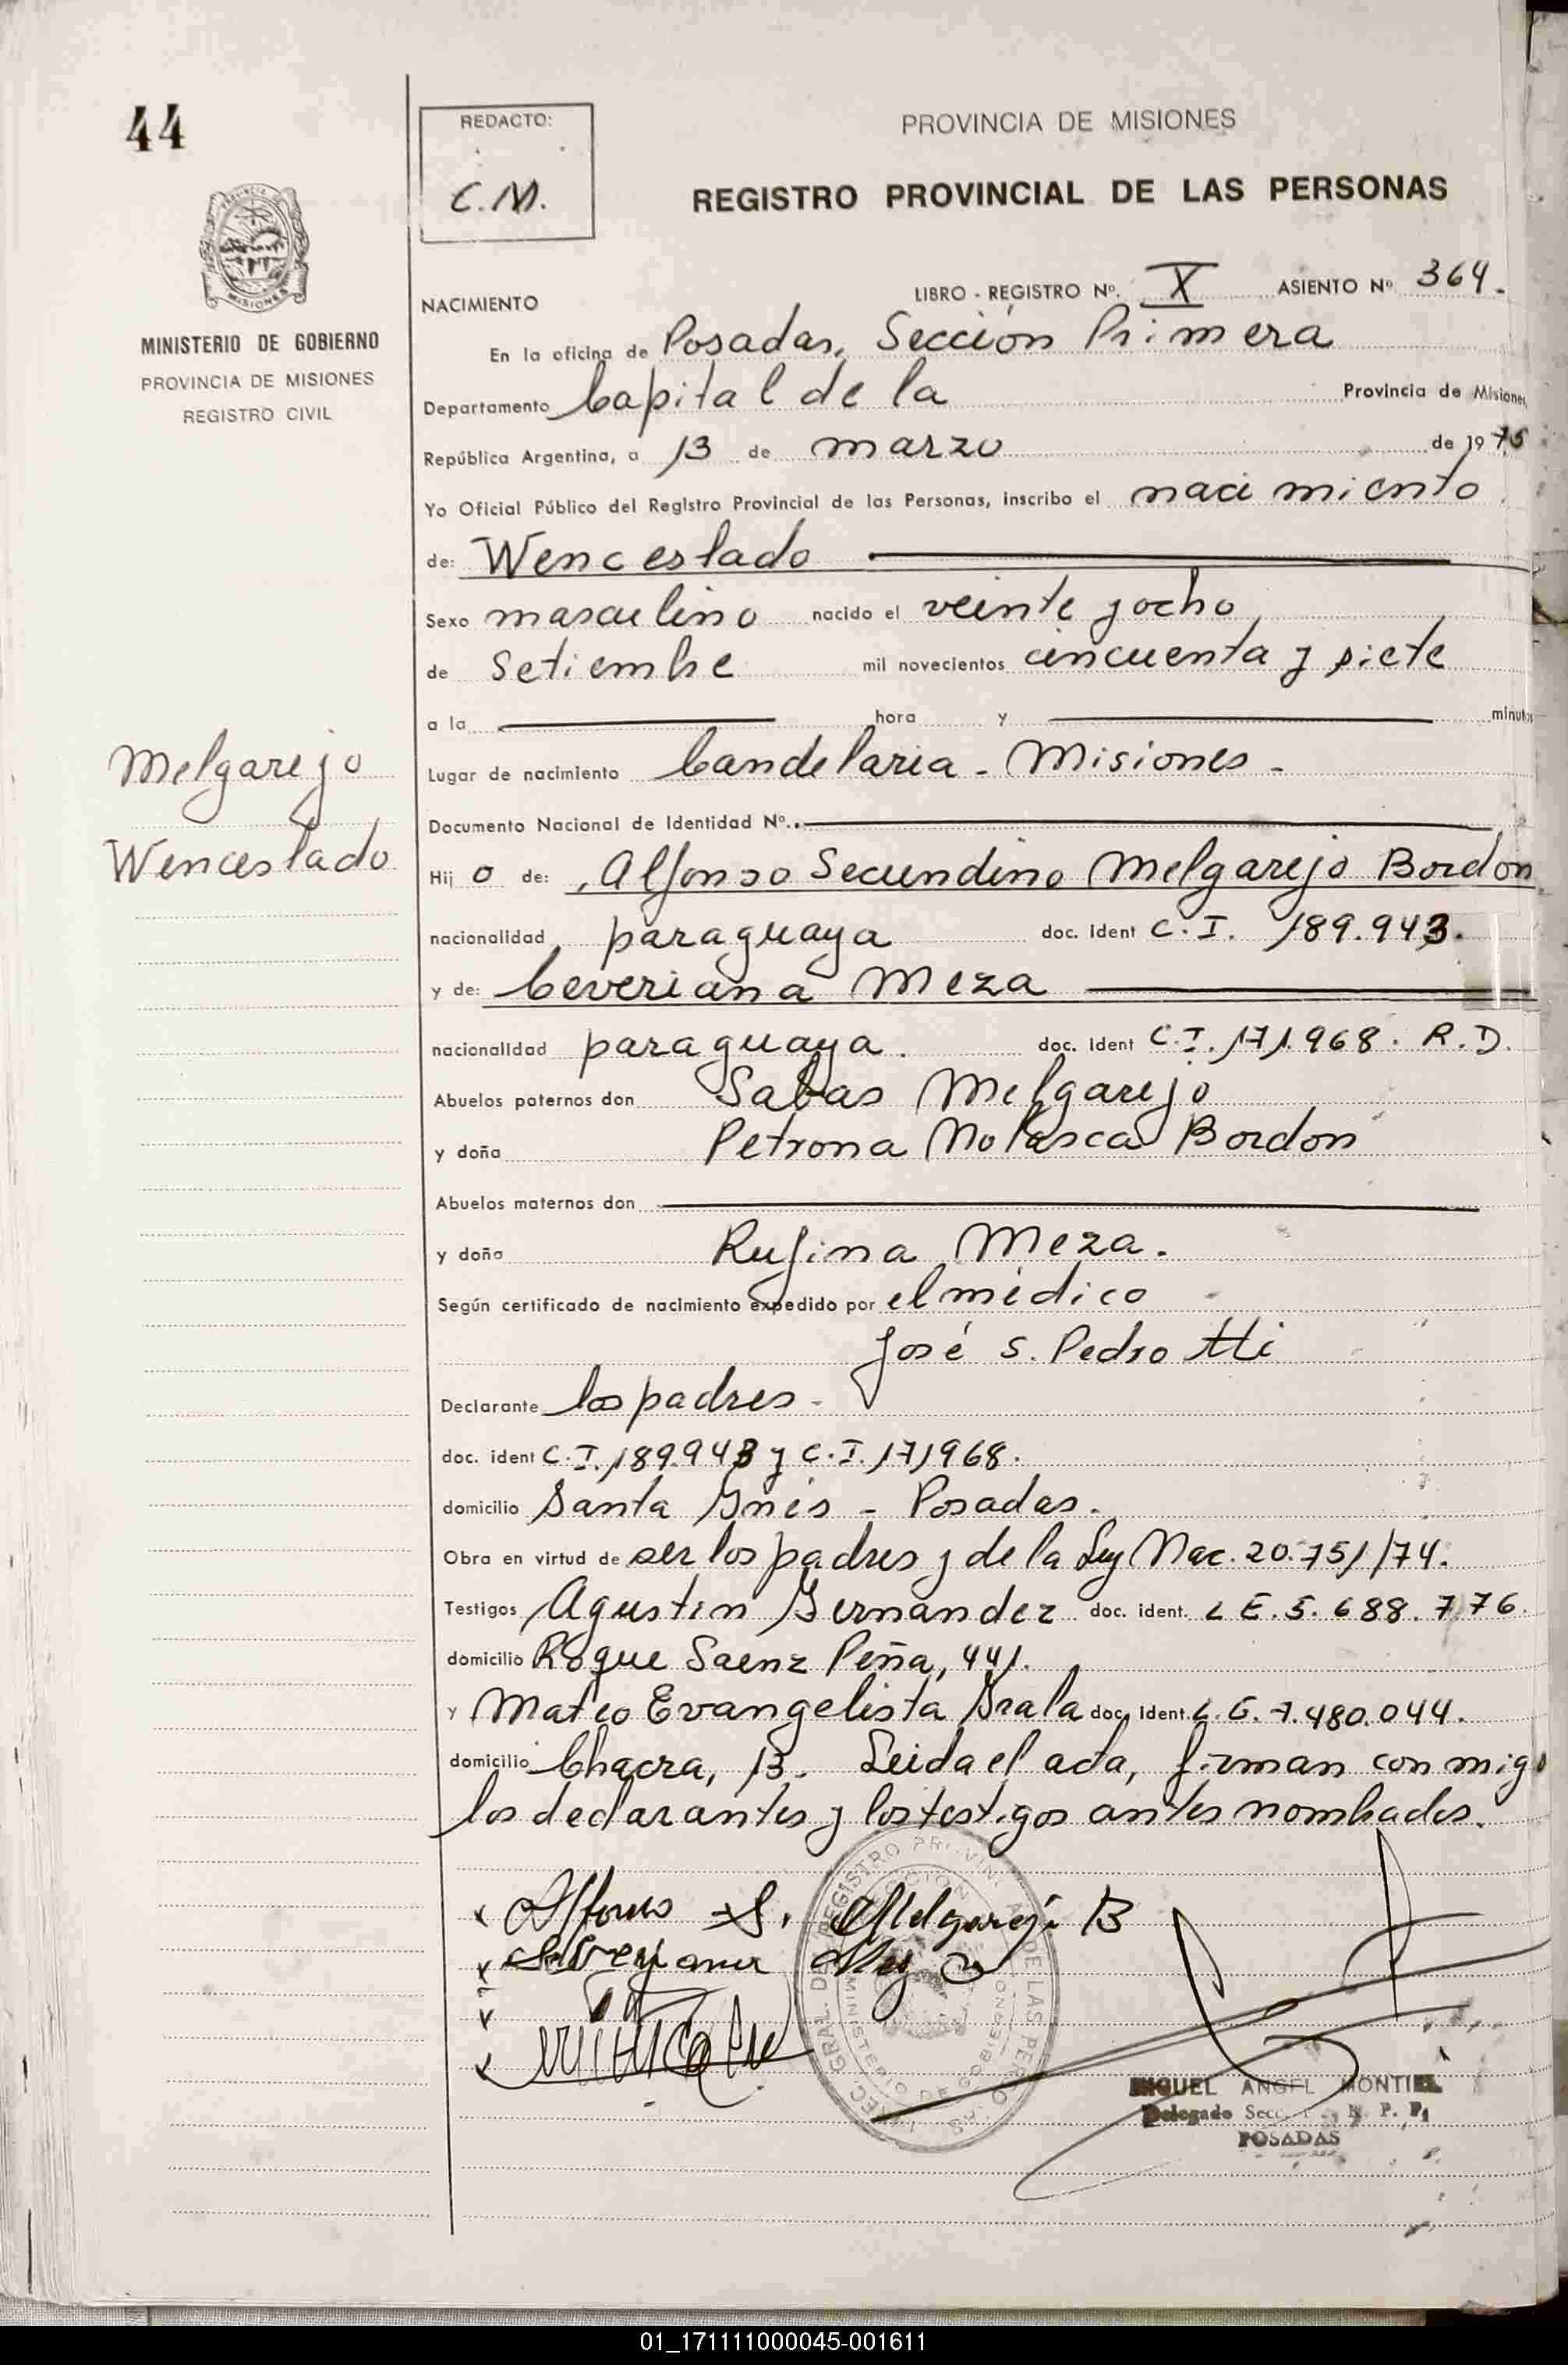 44
REDACTO:
C.M.
PROVINCIA DE MISIONES
REGISTRO PROVINCIAL DE LAS PERSONAS
MISIONES
MINISTERIO DE GOBIERNO
PROVINCIA DE MISIONES
REGISTRO CIVIL
NACIMIENTO LIBRO - REGISTRO Nº. X ASIENTO Nº 364.
En la oficina de Posadas, Sección Primera
Departamento Capital de la Provincia de Misiones,
República Argentina, a 13 de marzo de 1975
Yo Oficial Público del Registro Provincial de las Personas, inscribo el nacimiento
de: Wenceslado
Sexo masculino nacido el veinte y ocho
de Setiembre mil novecientos cincuenta y siete
a la hora y minutos
Melgarejo
Wenceslado
Lugar de nacimiento Candelaria - Misiones -
Documento Nacional de Identidad Nº..
Hij o de: Alfonso Secundino Melgarejo Bordon
nacionalidad paraguaya doc. ident C.I. 189.943.
y de: Ceveriana Meza
nacionalidad paraguaya. doc. ident C.I. 171.968. R.D.
Abuelos paternos don Sabas Melgarejo
y doña Petrona Nolasca Bordon
Abuelos maternos don
y doña Rufina Meza.
Según certificado de nacimiento expedido por el médico
José S. Pedrotti
Declarante los padres -
doc. ident C.I. 189.943 y C.I. 171968.
domicilio Santa Ynés - Posadas.
Obra en virtud de ser los padres y de la Ley Nac. 20.751/74.
Testigos Agustin doc. ident. L E. 5.688.776.
domicilio Roque Saenz Peña, 441.
y Mateo Evangelista Irala doc. ident. L.E. 7.480.044.
domicilio Chacra, 13. Leida el acta, firman conmigo
los declarantes y los testigos antes nombrados.
Alfonso S. Melgarejo B
Severiana Meza
DIREC. GRAL. DEL REGISTRO PROVIN. DE LAS PERSONAS
MINISTERIO DE GOBIERNO
MIGUEL ANGEL MONTIEL
Delegado Secc. R. P. P.
POSADAS
01_171111000045-001611